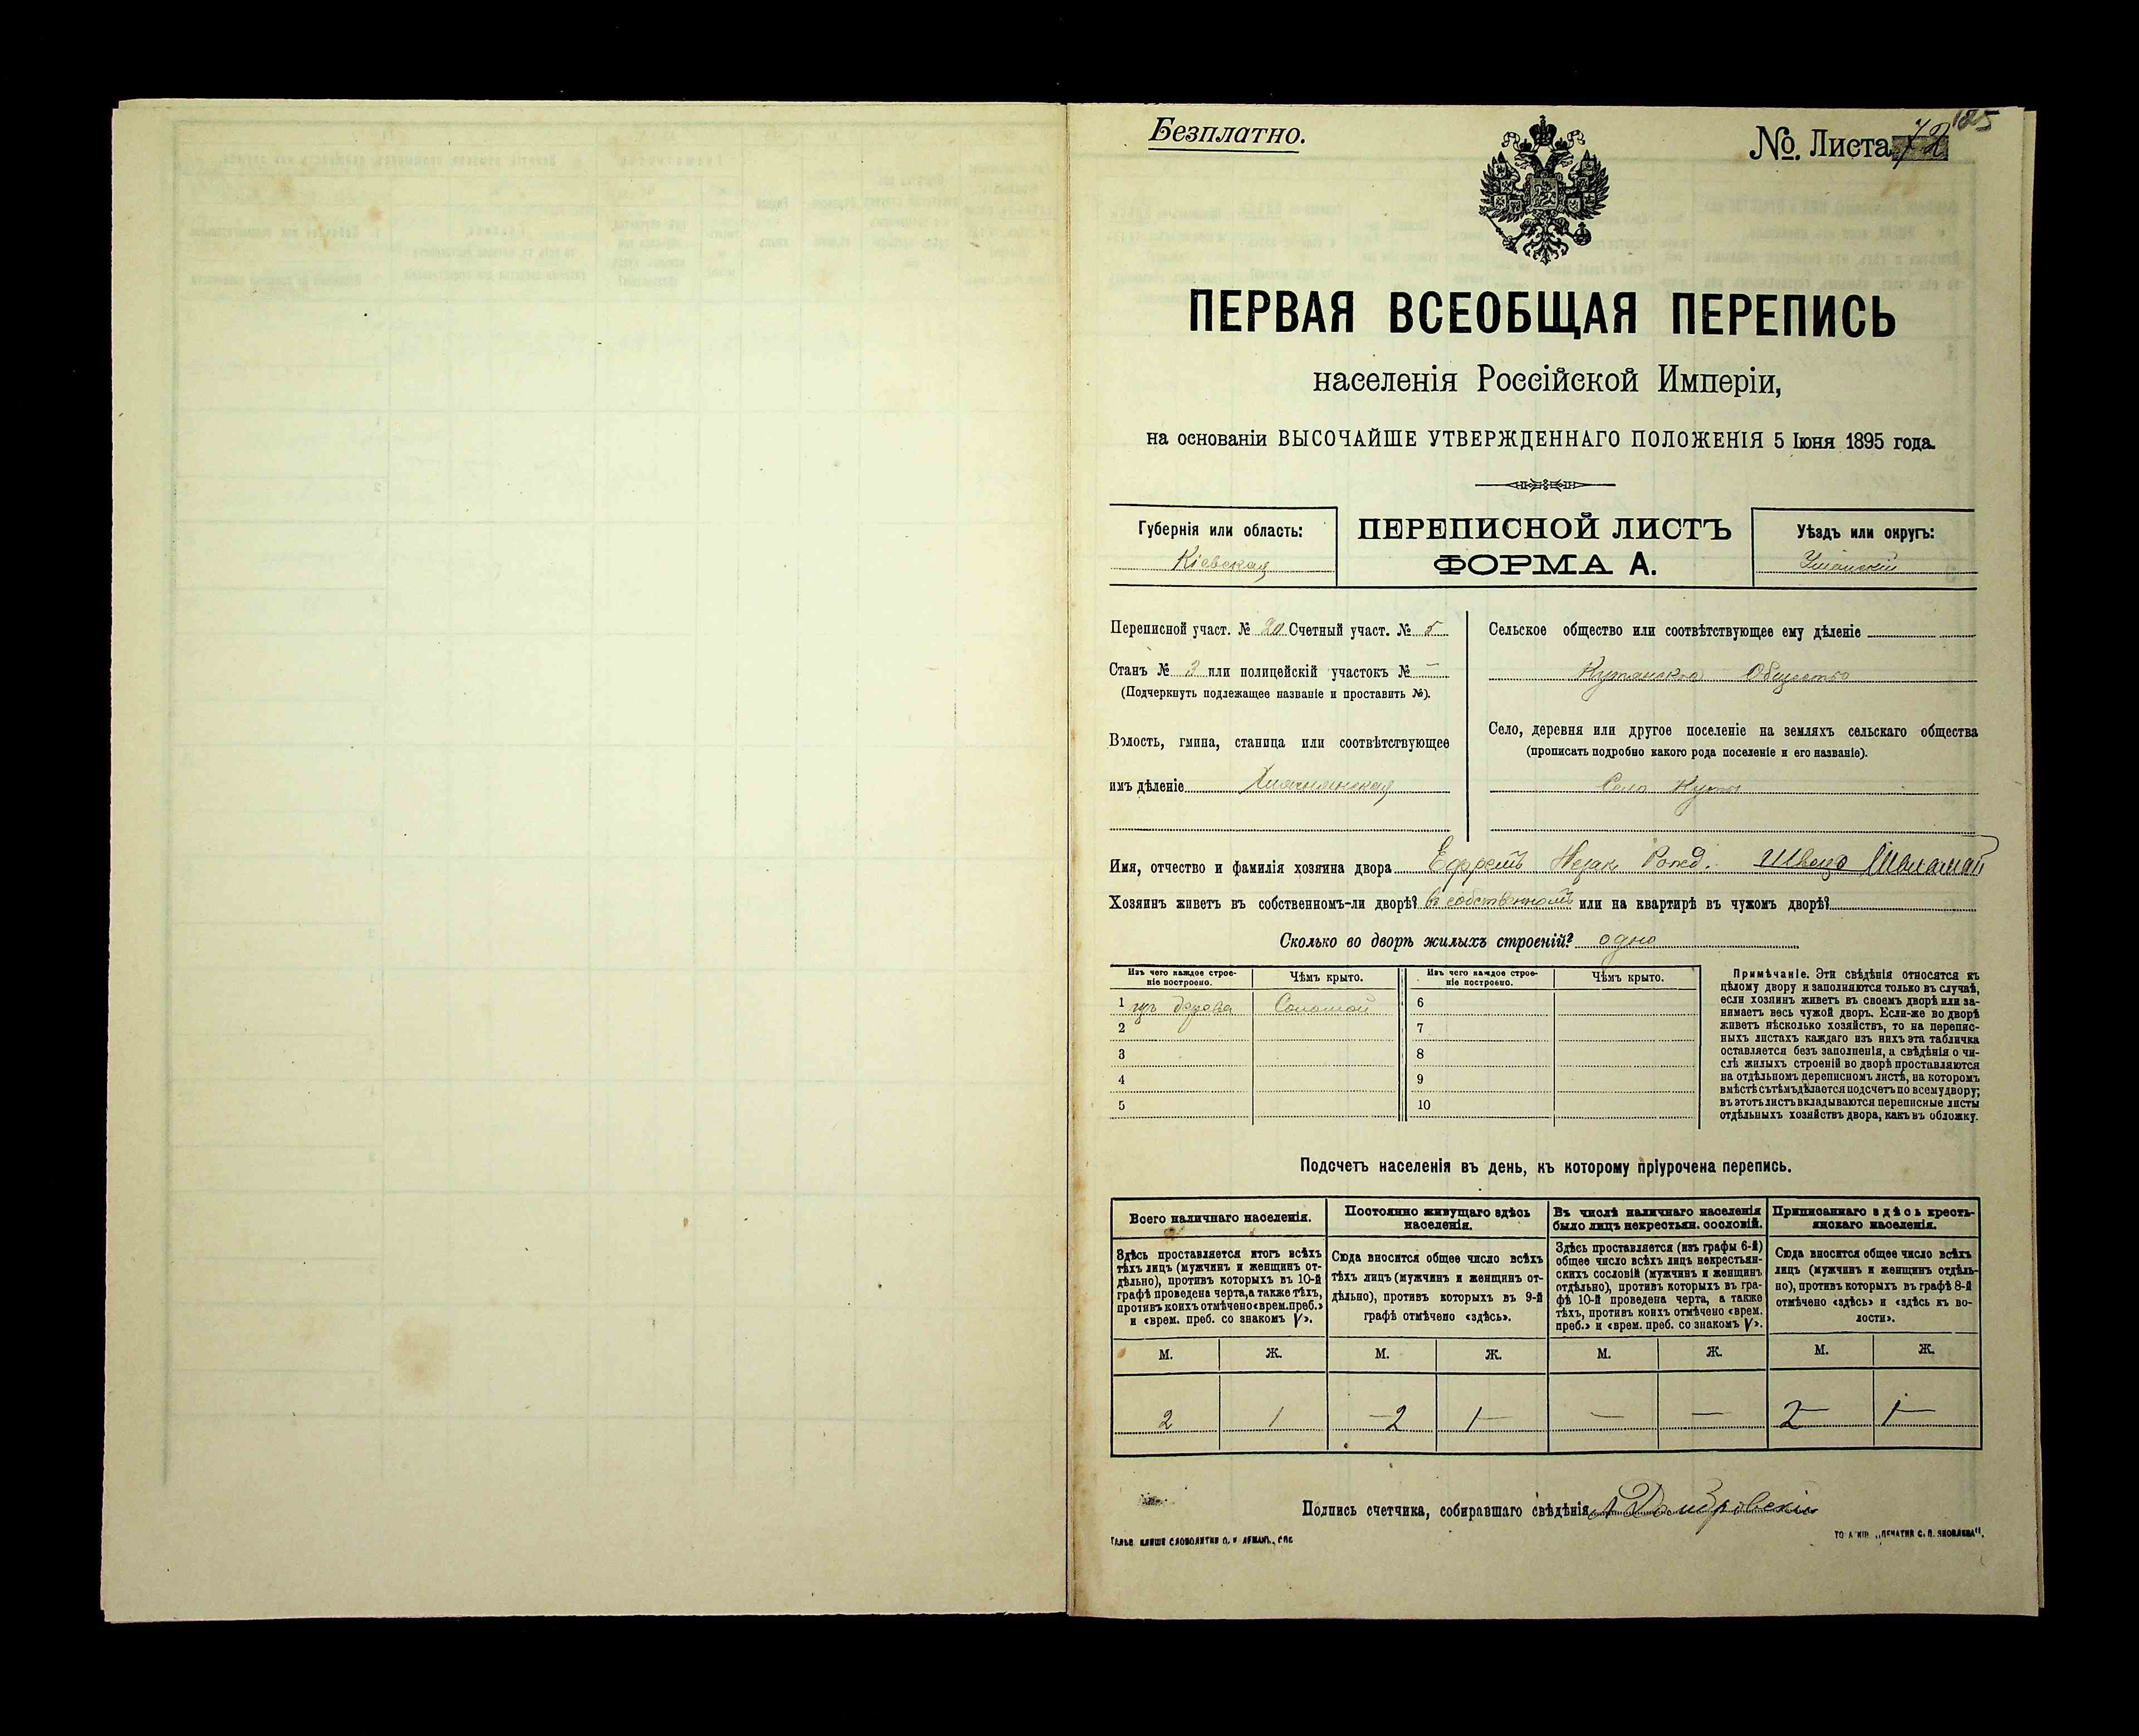 Безплатно.
№. Листа 72
185
ПЕРВАЯ ВСЕОБЩАЯ ПЕРЕПИСЬ
населенія Россійской Имперіи,
на основаніи ВЫСОЧАЙШЕ УТВЕРЖДЕННАГО ПОЛОЖЕНІЯ 5 Іюня 1895 года.
Губернія или область:
Кіевская
ПЕРЕПИСНОЙ ЛИСТЪ
ФОРМА А.
Уѣздъ или округъ:
Уманскій
Переписной участ. № 20 Счетный участ. № 5
Станъ № 3 или полицейскій участокъ № —
(Подчеркнуть подлежащее названіе и проставить №).
Волость, гмина, станица или соотвѣтствующее
имъ дѣленіе
Сельское общество или соотвѣтствующее ему дѣленіе
Общество
Село, деревня или другое поселеніе на земляхъ сельскаго общества
(прописать подробно какого рода поселеніе и его названіе).
Село Куты
Имя, отчество и фамилія хозяина двора Ефремъ Швецъ
Хозяинъ живетъ въ собственномъ-ли дворѣ? въ собственномъ или на квартирѣ въ чужомъ дворѣ?
Сколько во дворѣ жилыхъ строеній? одно
Изъ чего каждое строе-
ніе построено.
Чѣмъ крыто.
1 изъ дерева Соломой
2
3
4
5
Изъ чего каждое строе-
ніе построено.
Чѣмъ крыто.
6
7
8
9
10
Примѣчаніе. Эти свѣдѣнія относятся къ
цѣлому двору и заполняются только въ случаѣ,
если хозяинъ живетъ въ своемъ дворѣ или за-
нимаетъ весь чужой дворъ. Если-же во дворѣ
живетъ нѣсколько хозяйствъ, то на перепис-
ныхъ листахъ каждаго изъ нихъ эта табличка
оставляется безъ заполненія, а свѣдѣнія о чи-
слѣ жилыхъ строеній во дворѣ проставляются
на отдѣльномъ переписномъ листѣ, на которомъ
вмѣстѣ съ тѣмъ дѣлается подсчетъ по всему двору;
въ этотъ листъ вкладываются переписные листы
отдѣльныхъ хозяйствъ двора, какъ въ обложку.
Подсчетъ населенія въ день, къ которому пріурочена перепись.
Всего наличнаго населенія.
Здѣсь проставляется итогъ всѣхъ
тѣхъ лицъ (мужчинъ и женщинъ от-
дѣльно), противъ которыхъ въ 10-й
графѣ проведена черта, а также тѣхъ,
противъ коихъ отмѣчено «врем. преб.»
и «врем. преб. со знакомъ V».
М. Ж.
2 1
Постоянно живущаго здѣсь
населенія.
Сюда вносится общее число всѣхъ
тѣхъ лицъ (мужчинъ и женщинъ от-
дѣльно), противъ которыхъ въ 9-й
графѣ отмѣчено «здѣсь».
М. Ж.
2 1
Въ числѣ наличнаго населенія
было лицъ некрестьян. сословій.
Здѣсь проставляется (изъ графы 6-й)
общее число всѣхъ лицъ некрестьян-
скихъ сословій (мужчинъ и женщинъ
отдѣльно), противъ которыхъ въ гра-
фѣ 10-й проведена черта, а также
тѣхъ, противъ коихъ отмѣчено «врем.
преб.» и «врем. преб. со знакомъ V».
М. Ж.
— —
Приписаннаго здѣсь кресть-
янскаго населенія.
Сюда вносится общее число всѣхъ
лицъ (мужчинъ и женщинъ отдѣль-
но), противъ которыхъ въ графѣ 8-й
отмѣчено «здѣсь» и «здѣсь къ во-
лости».
М. Ж.
2 1
Подпись счетчика, собиравшаго свѣдѣнія Домбровскій